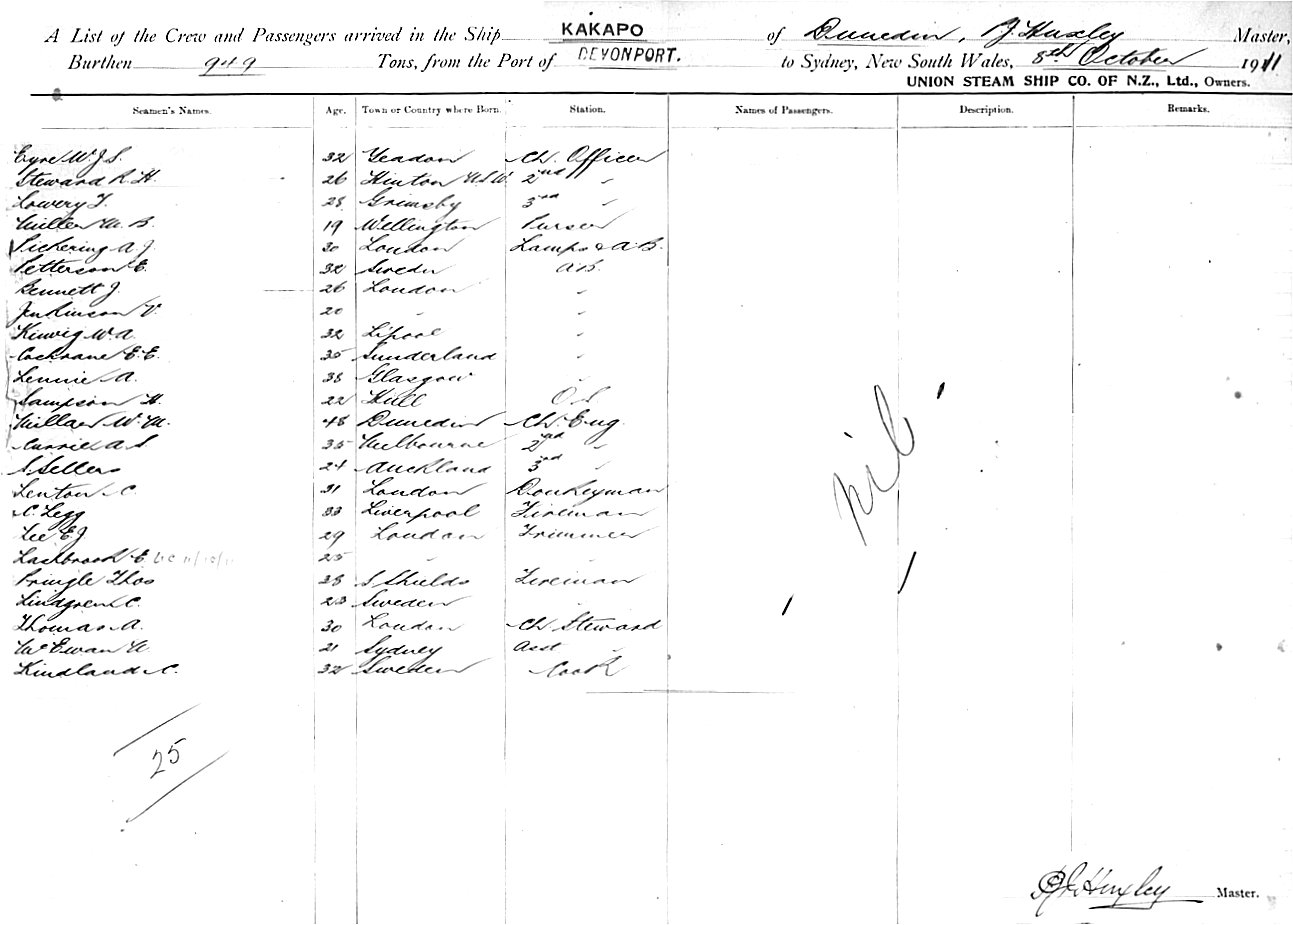 A List of the Crew and Passengers arrived in the Ship KAKAPO of Dunedin, Huxley Master,
Burthen 949 Tons, from the Port of DEVONPORT. to Sydney, New South Wales, 8th October 1911
UNION STEAM SHIP CO. OF N.Z., Ltd., Owners.
Seamen's Names. Age. Town or Country where Born. Station. Names of Passengers. Description. Remarks.
Eyre W.J.S. 32 Yeadon Ch. Officer
Steward R.H. 26 Hinton N.S.W. 2nd "
Lowery T. 28 Grimsby 3rd "
Miller M.B. 19 Wellington Purser
Pickering A.J. 30 London Lamps & A.B.
Petterson E. 32 Sweden A.B.
Bennett J. 26 London "
Jenkinson V. 20 " "
Kinvig W.A. 32 L'pool "
Cochrane E.E. 35 Sunderland "
Lennie A. 38 Glasgow "
Sampson H. 22 Hull O.S.
Millar W.M. 48 Dunedin Ch. Eng.
Currie A.S. 35 Melbourne 2nd "
S. Sellers 24 Auckland 3rd "
Lenton C. 31 London Donkeyman
C. Legg 33 Liverpool Fireman
Lee E.J. 29 London Trimmer
Lashbrook E. 25 "
Pringle Thos 28 S. Shields Fireman
Lindgren C. 23 Sweden
Thomas A. 30 London Ch. Steward
McEwan A. 21 Sydney Asst "
Kindland C. 32 Sweden Cook
nil
25
Huxley Master.